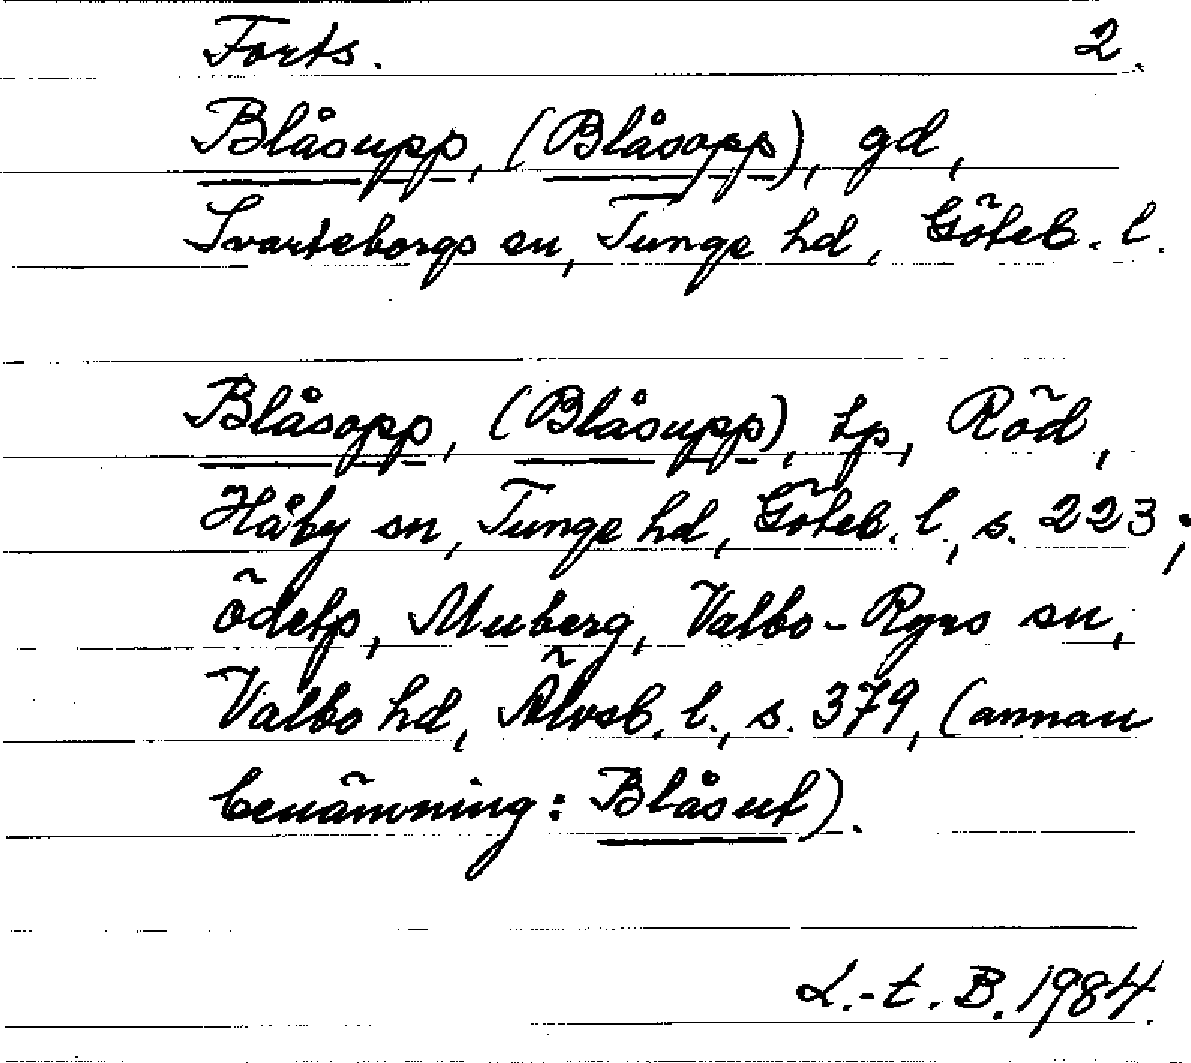 Forts. 2.
Blåsupp, (Blåsopp), gd,
Svarteborgs sn, Tunge hd, Göteb. l.
Blåsopp, (Blåsupp), tp, Röd,
Håby sn, Tunge hd, Göteb. l., s. 223;
ödetp, Muberg, Valbo-Ryrs sn,
Valbo hd, Älvsb. l., s. 379, (annan
benämning: Blåsut).
L.-t. B. 1984.